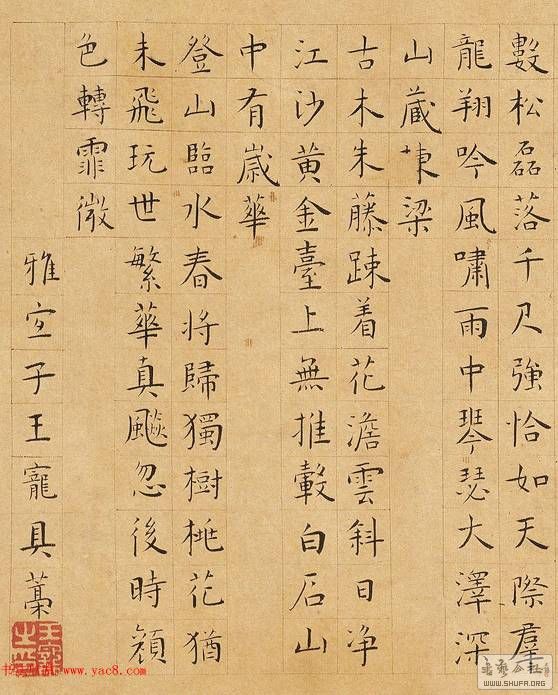 數松磊落千尺強恰如天際羣
龍翔吟風嘯雨中琴瑟大澤深
山蔵棟梁
古木朱藤踈着花澹雲斜日净
江沙黄金臺上無推轂白石山
中有歳華
登山臨水春将歸獨樹桃花猶
未飛玩世繁華真飈忽後時顔
色轉霏微
雅宜子王寵具藁
王寵之印
书法欣赏 www.yac8.com
WWW.SHUFR.ORG